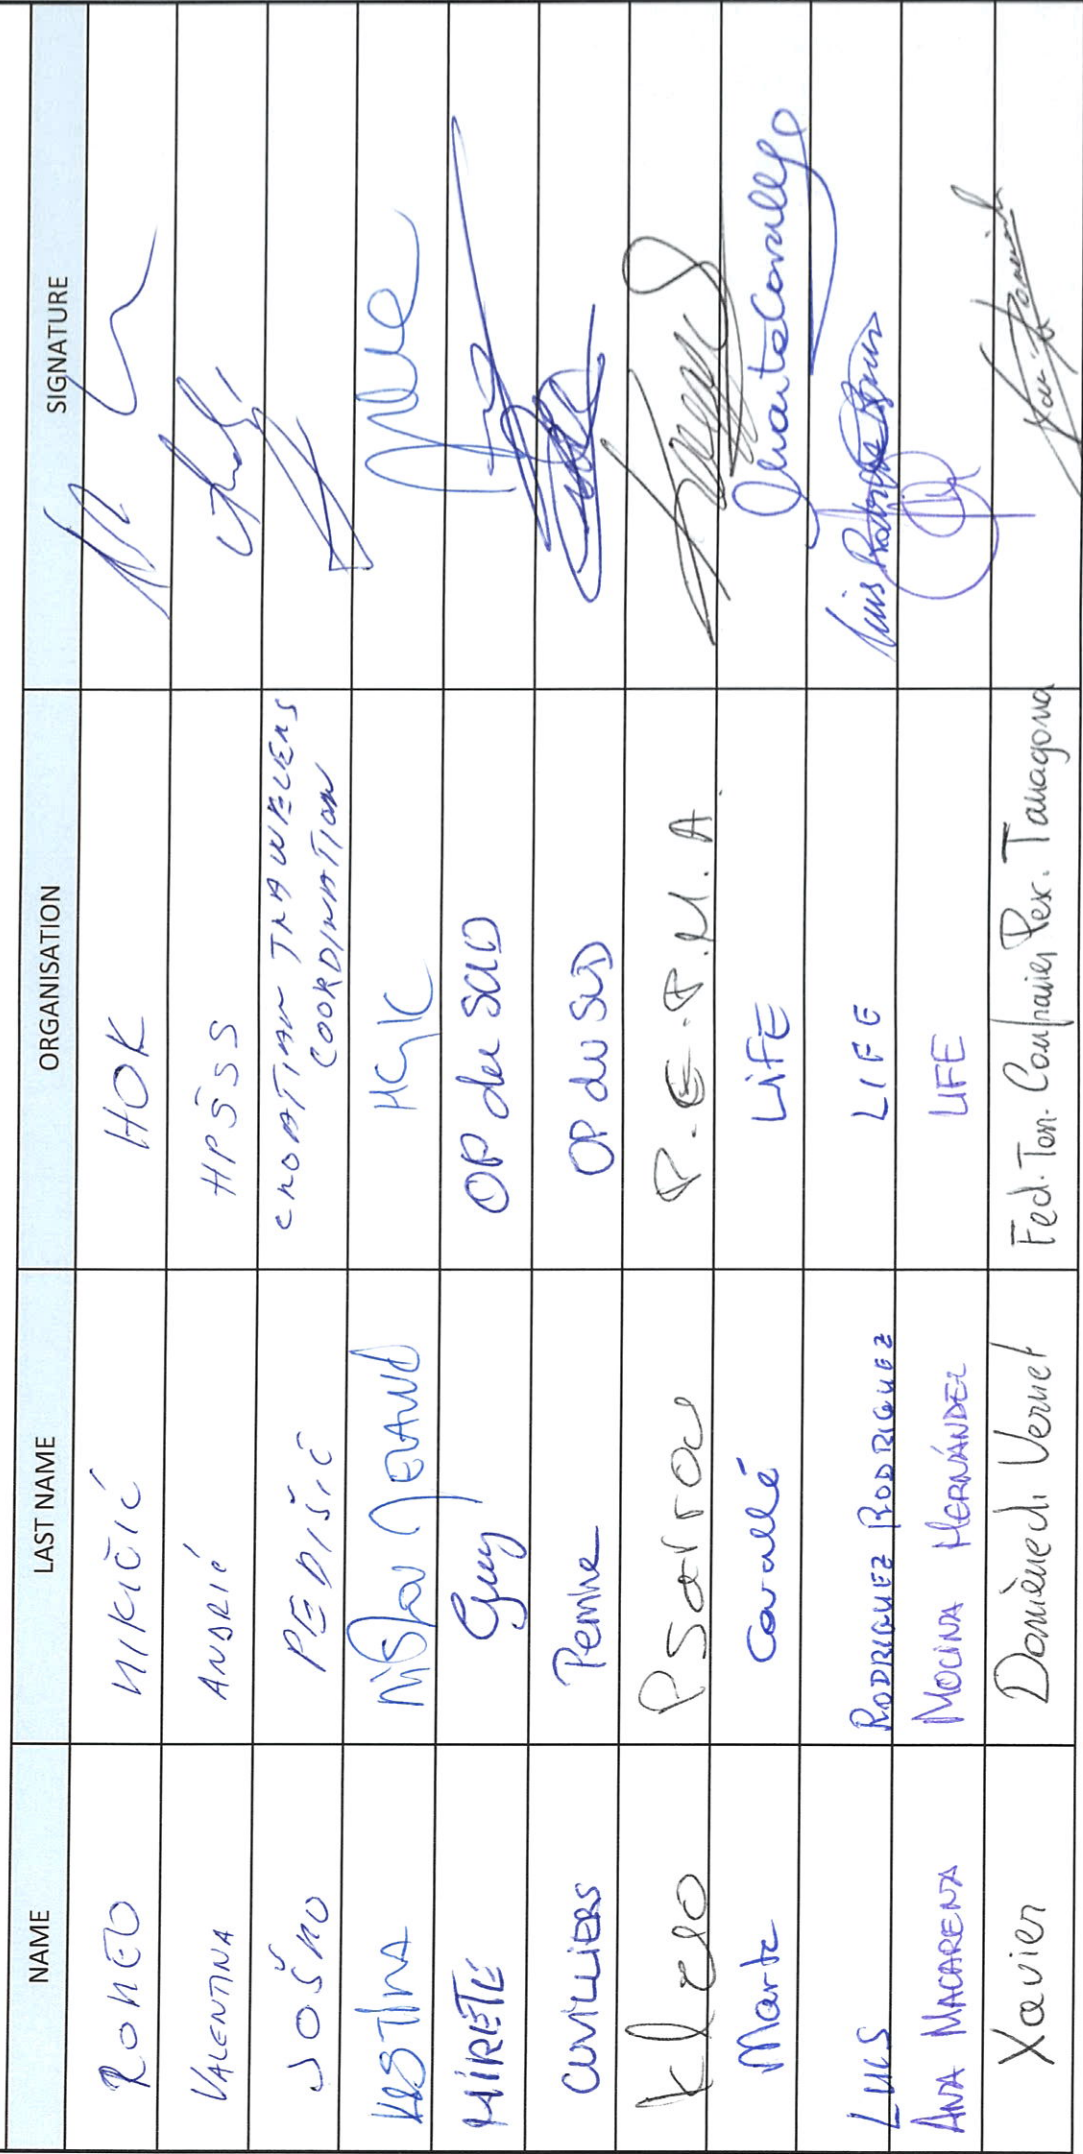 NAME LAST NAME ORGANISATION SIGNATURE
ROMEO NIKIČIĆ HOK
VALENTINA ANDRIĆ HPŠSS
JOŠKO PEDIŠIĆ CROATIAN TRAWLERS
COORDINATION
MIŠLOV HGK
MIRETE Guy OP du SUD
CUVILLIERS Perrine OP du SUD
Kleo Psarrou P.E.P.M.A.
Marta Cavallé LIFE Marta Cavallé
LUIS RODRIGUEZ RODRIGUEZ LIFE Luis Rodriguez
ANA MACARENA MOLINA HERNÁNDEZ LIFE
Xavier Domènech Vernet Fed. Terr. Confraries Pex. Tarragona